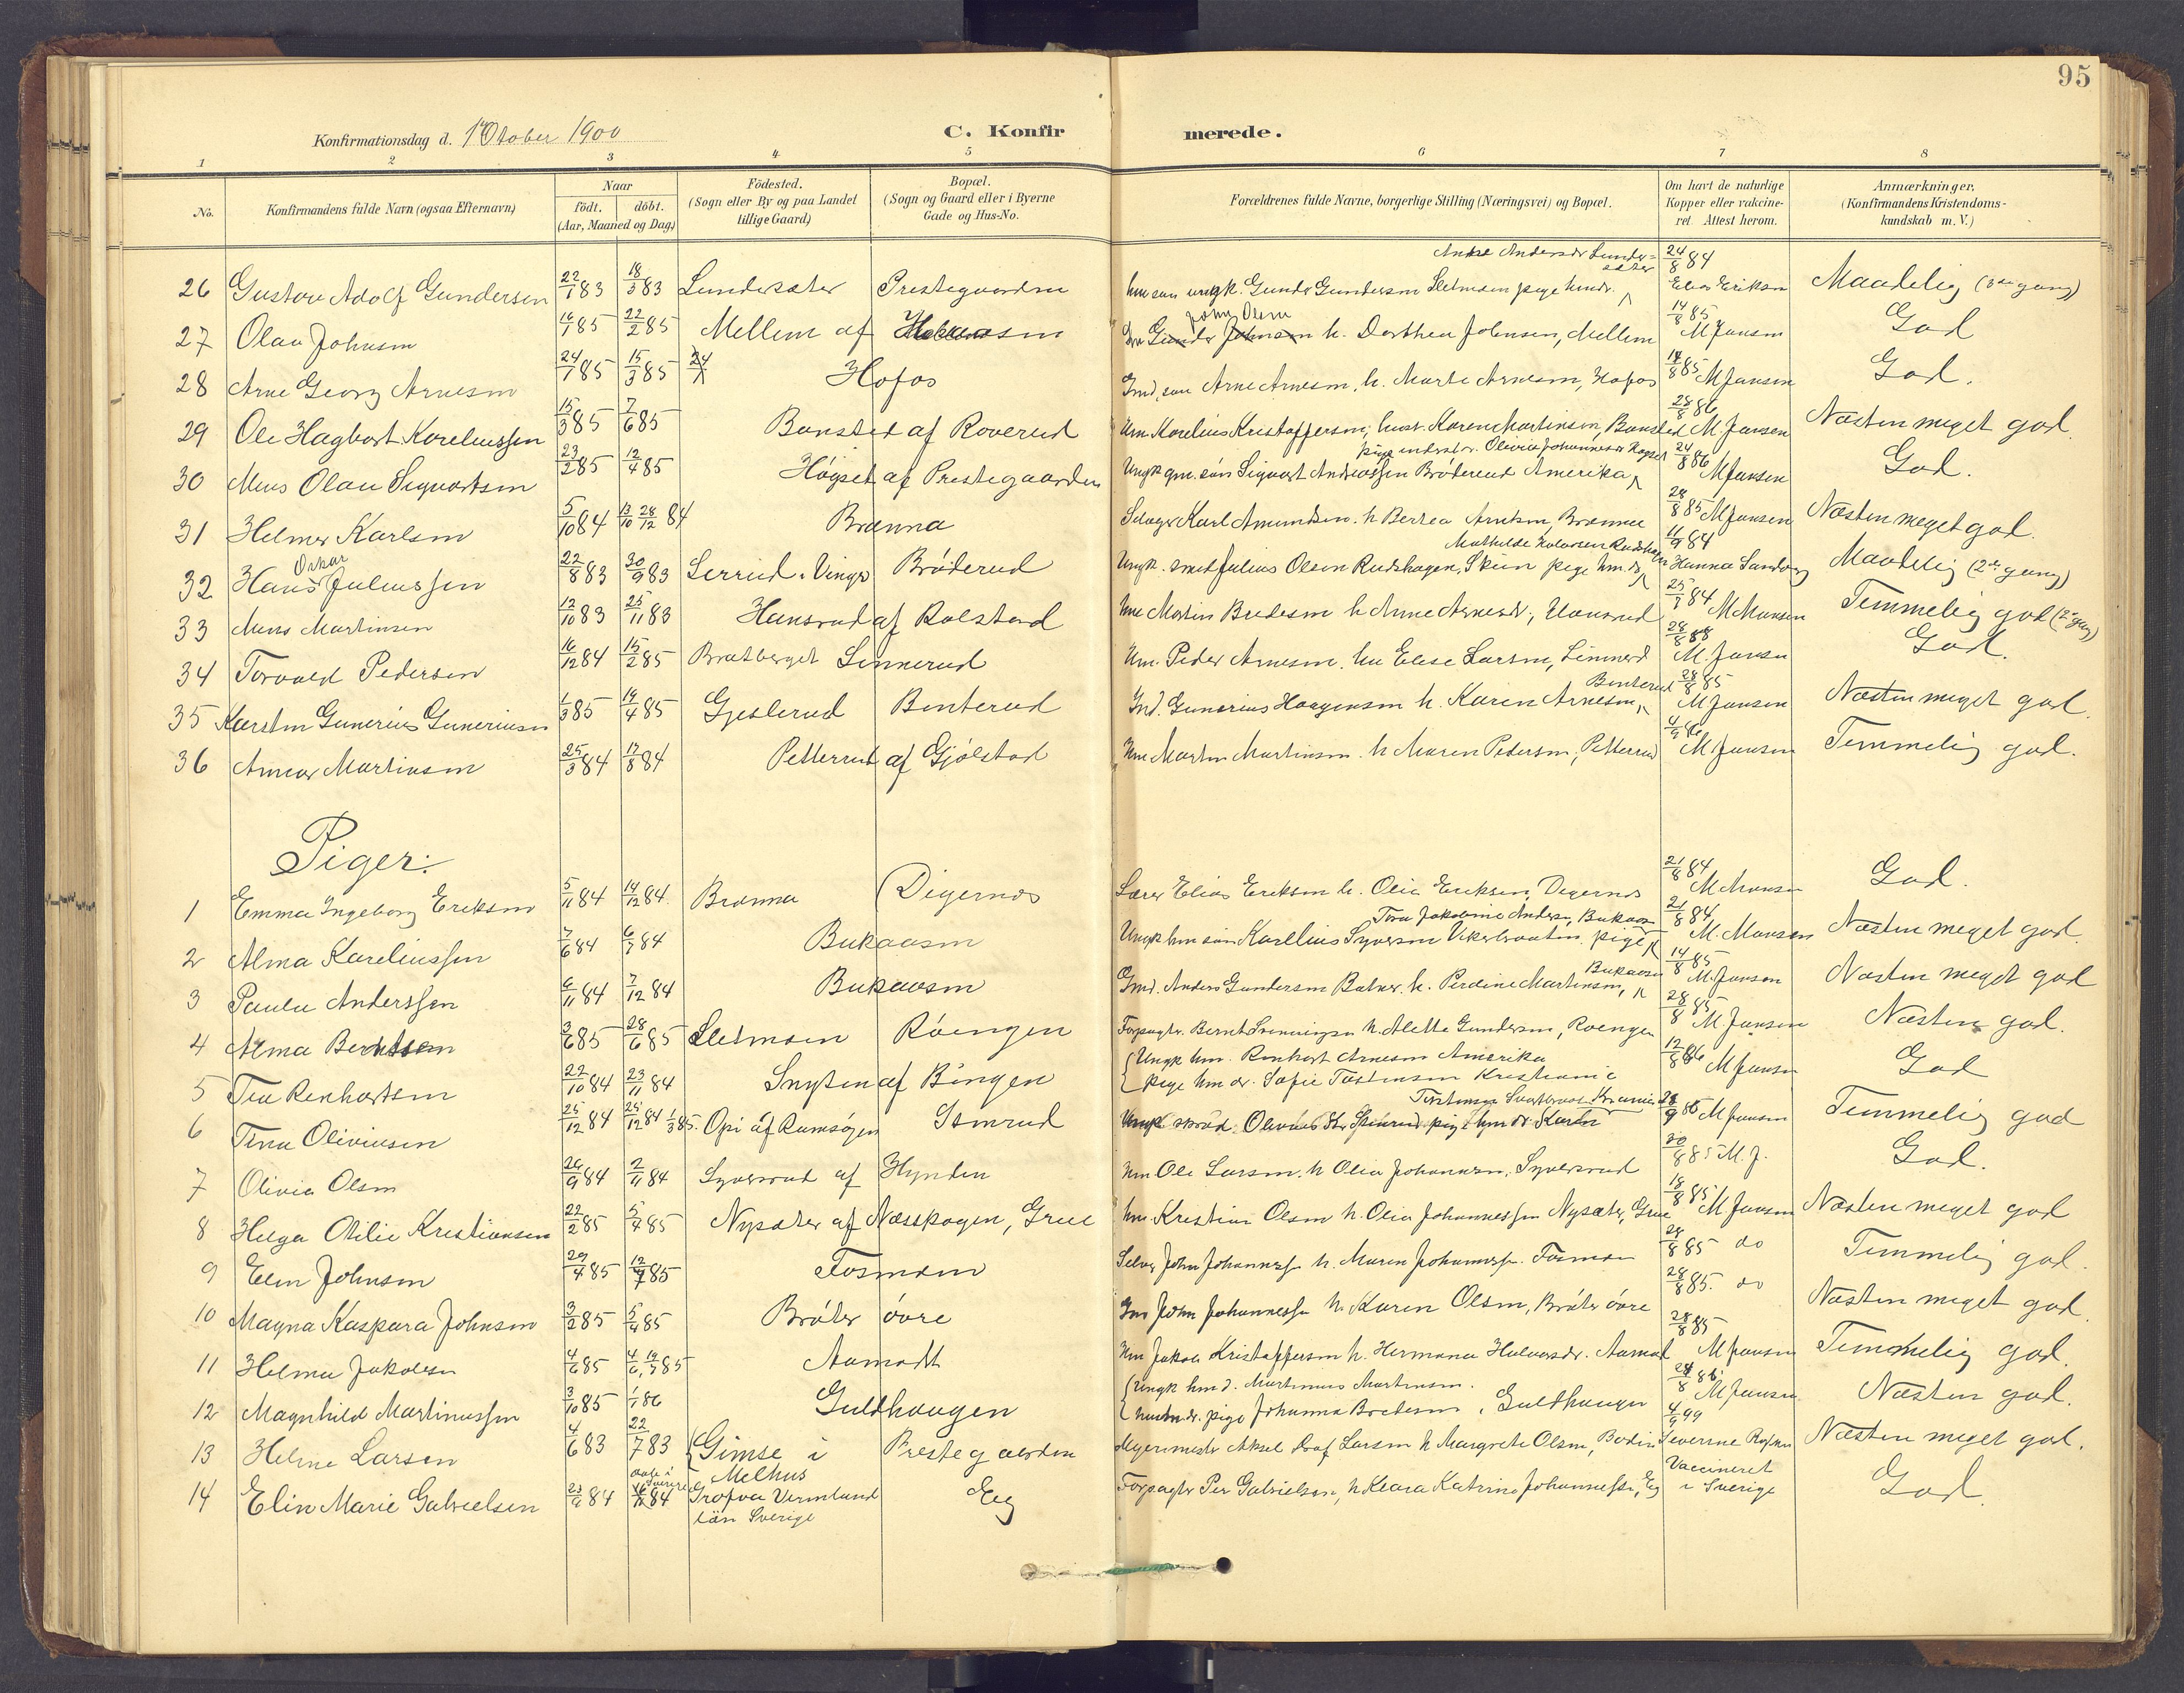 95
Konfirmationsdag d. 1 Oktober 1900
C. Konfirmerede.
1 2 3 4 5 6 7 8
No. Konfirmandens fulde Navn (ogsaa Efternavn) Naar født. døbt. (Aar, Maaned og Dag) Födested. (Sogn eller By og paa Landet tillige Gaard) Bopæl. (Sogn og Gaard eller i Byerne Gade og Hus-No. Forældrenes fulde Navne, borgerlige Stilling (Næringsvei) og Bopæl. Om havt de naturlige Kopper eller vakcineret Attest herom. Anmærkninger. (Konfirmandens Kristendomskundskab m. V.)
26 Gustav Adolf Gundersen 22/1 83 18/3 83 Lundersæter Prestegaarden 24/8 84 Elias Eriksen Maadelig (3die gang)
27 Olav Johnsen 16/1 85 22/2 85 Mellem af John Olsen h. Dorthea Johnsen, Mellem 14/8 85 M Jansen God
28 Arne Georg Arnesen 24/1 85 15/3 85 Hofos Gmd, søn Arne Arnesen, h. Marte Arnesen, Hofos 14/8 85 M Jansen God.
29 Ole Hagbart Koreliussen 15/3 85 7/6 85 Bansted af Roverud Um. Korelius Kristoffersen, hust. Karen Martinsen Bansted 28/8 86 M. Jansen Næsten meget god.
30 Mens Olav Sigvartsen 23/2 85 12/4 85 Høgset af Prestegaarden Ungk. gm. søn Sigvart Andreassen Brøderud Amerika, pige inderst dr. Olivia Johannesdr Høgset 24/8 86 M Jansen God.
31 Helmer Karlsen 5/10 84 13/10 28/12 84 Brænna Selveger Karl Amundsen. h Bertea Arntsen, Brænna 28/8 85 M Jansen Næsten meget god.
32 Hans Oskar Juliussen 22/8 83 30/9 83 Lerrud. Vinger Brøderud Ungk. smed Julius Olsen Rudshagen, Skien pige hm.dr. Mathilde Halvorsen Rudshagen 11/9 84 Hanna Sandberg Maadelig (2den gang)
33 Mens Martinsen 12/10 83 25/11 83 Hansrud af Rolstad hm Martin Bredesen h Anne Arnesdr., Hansrud 25/7 84 M Monsen Temmelig god (2den gang)
34 Torvald Pedersen 16/12 84 15/2 85 Bratberget Linnerud Um. Peder Arnesen. hu Elise Larsen, Linnerd 28/8 88 M. Jansen God.
35 Karsten Gunerius Guneriusen 1/3 85 14/4 85 Gjeslerud Benterud Gmd. Gunerius Haagensen h. Karen Arnesen, Benterud 28/8 85 M Jansen Næsten meget god.
36 Annar Martinsen 25/3 84 17/8 84 Petterrud af Gjølstad hm Morten Martinsen. h Maren Pedersen, Petterrud M. Jansen Temmelig god.
Piger:
1 Emma Ingeborg Eriksen 5/11 84 14/12 84. Brænna Digernes Lærer Elias Eriksen h. Olia Eriksen, Digernes 21/8 84 M Monsen God.
2 Alma Kareliussen 7/6 84 6/7 84 Bukaasen Ungk hm søn Karelius Syversen pige Tora Jakobine Anders. Bukaasen 21/8 84 M. Monsen Næsten meget god.
3 Paula Anderssen 6/11 84 7/12 84 Bukaasen Gmd. Anders Gundersen h. Perdine Martinsen, Bukaasen 14/8 85 M. Jansen Næsten meget god
4 Alma Berntsen 3/6 85 28/6 85 Sletmoen Røengen Forpagter. Bernt Svenningsen h. Alette Gundersen, Røengen 28/8 85 M. Jansen Næsten god.
5 Tea Renhartsen 22/10 84 23/11 84 Snytin af Bingen Ungk hm. Renhart Arnesen Amerika pige hm dr. Sofie Tostensen Kristiania 12/8 86 M Jansen God
6 Tina Oliviusen 25/12 84 25/12 84 1/3 85. Opi af Ramsøyen Stenrud M Jansen Temmelig god
7 Olivia Olsen 26/9 84 2/11 84 Syversrud af Hynden hm Ole Larsen. h Olea Johannesen, Syversrud 30/8 85 M. J. God.
8 Helga Otilie Kristiansen 22/2 85 5/4 85 Nysæter af Næsskogen, Grue hm. Kristian Olsen h. Olia Johannessen Nysæter, Grue 18/8 85 M Jansen Næsten meget god
9 Elen Johnsen 29/4 85 12/7 85 Tosmoen Selve. John Johanness. h. Maren Johanness. Tosmoen 28/8 85 do Temmelig god.
10 Magna Kaspara Johnsen 3/2 85 5/4 85 Bråter øvre Gm John Johannessen h. Karen Olsen, Bråter øvre 28/8 85. do Næsten meget god.
11 Helma Jakobsen 4/6 85 4/6, 19/7 85 Aamodt hm Jakob Kristoffersen h. Hermana Halvorsdr. Aamot 28/8 85 M Jansen Temmelig god.
12 Magnhild Martinussen 3/10 85 1/1 86 Guldhaugen Ungk hm d. Martinus Martinsen. pige Johanna Bredesen, Guldhaugen 24/8 86 M Jansen. Næsten god.
13 Helene Larsen 4/6 83 22/7 83 Gimse i Melhus Prestegaarden Meyerimester Aksel Olaf Larsen h Margrete Olsen, Bodin 4/9 99 Næsten meget god.
14 Elin Marie Gabrielsen 23/9 84 døbt i Sverige 84 Trofva Vermland län Sverige Eeg Forpagter Per Gabrielsen, h Klara Katrine Johannessen, Eg Vaccineret i Sverige God.